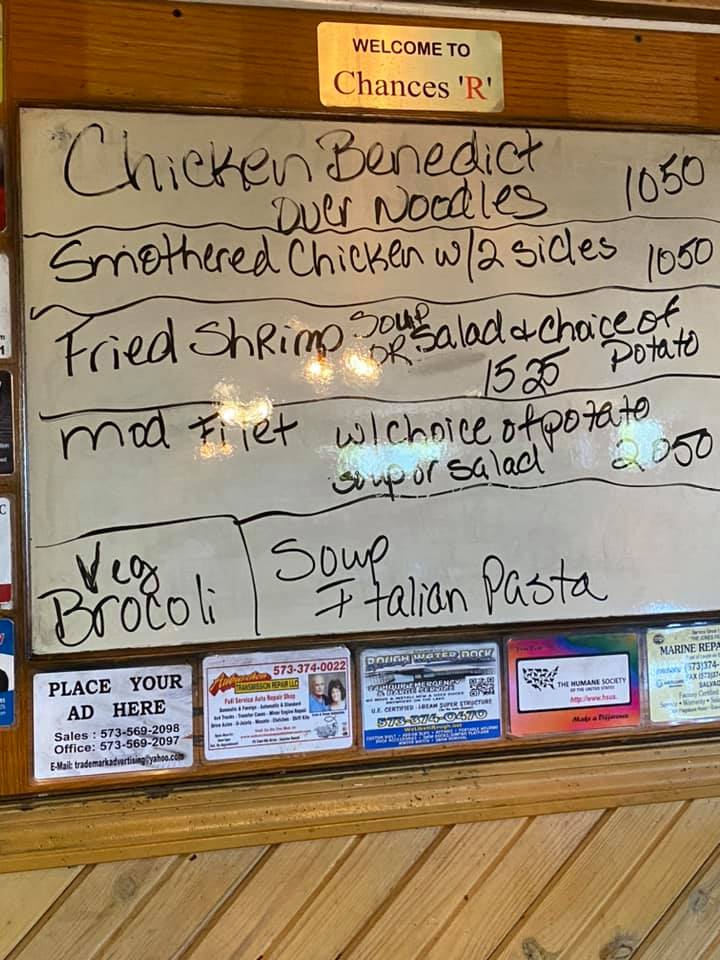 WELCOME TO
Chances 'R'
Chicken Benedict
over Noodles 1050
Smothered Chicken w/2 sides 1050
Fried Shrimp Soup OR Salad & choice of
1525 Potato
mod Filet w/choice of potato
soup or salad 2050
Veg
Brocoli
Soup
Italian Pasta
PLACE YOUR
AD HERE
Sales : 573-569-2098
Office: 573-569-2097
E-Mail: trademarkadvertising@yahoo.com
573-374-0022
TRANSMISSION REPAIR LLC
Full Service Auto Repair Shop
ROUGH WATER DOCK
24 HOUR EMERGENCY
& BARGE SERVICE
U.F. CERTIFIED I BEAM SUPER STRUCTURE
573-374-0470
THE HUMANE SOCIETY
OF THE UNITED STATES
http://www.hsus.
Make a Difference
MARINE REPA
(573)374-
FAX (573)37
Factory Certified